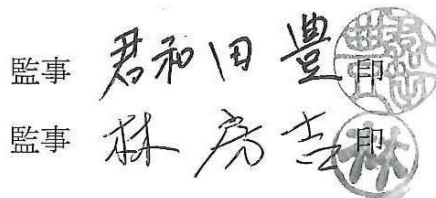 監事 君和田 豊 印
監事 林 房吉 印